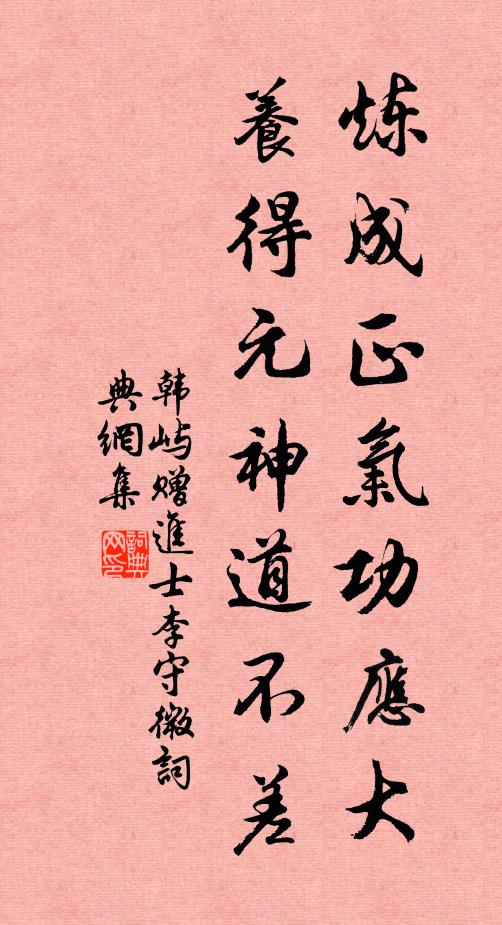 炼成正氣功應大
養得元神道不差
韩屿赠進士李守微詞
典網集
詞典
网印